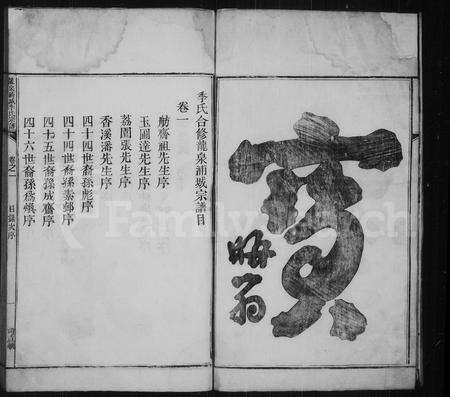 寶
晦翁
季氏合修龍泉浦城宗譜目
卷一
勛齋祖先生序
玉圃達先生序
荔園張先生序
香溪潘先生序
四十四世裔孫彪序
四十四世裔孫素郵序
四十五世裔孫成齋序
四十六世裔孫為煥序
卷之一
目錄次序
一
FamilySearch